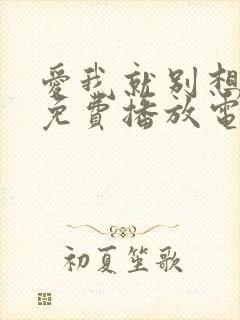 愛我就別想
免費播放電
初夏笙歌